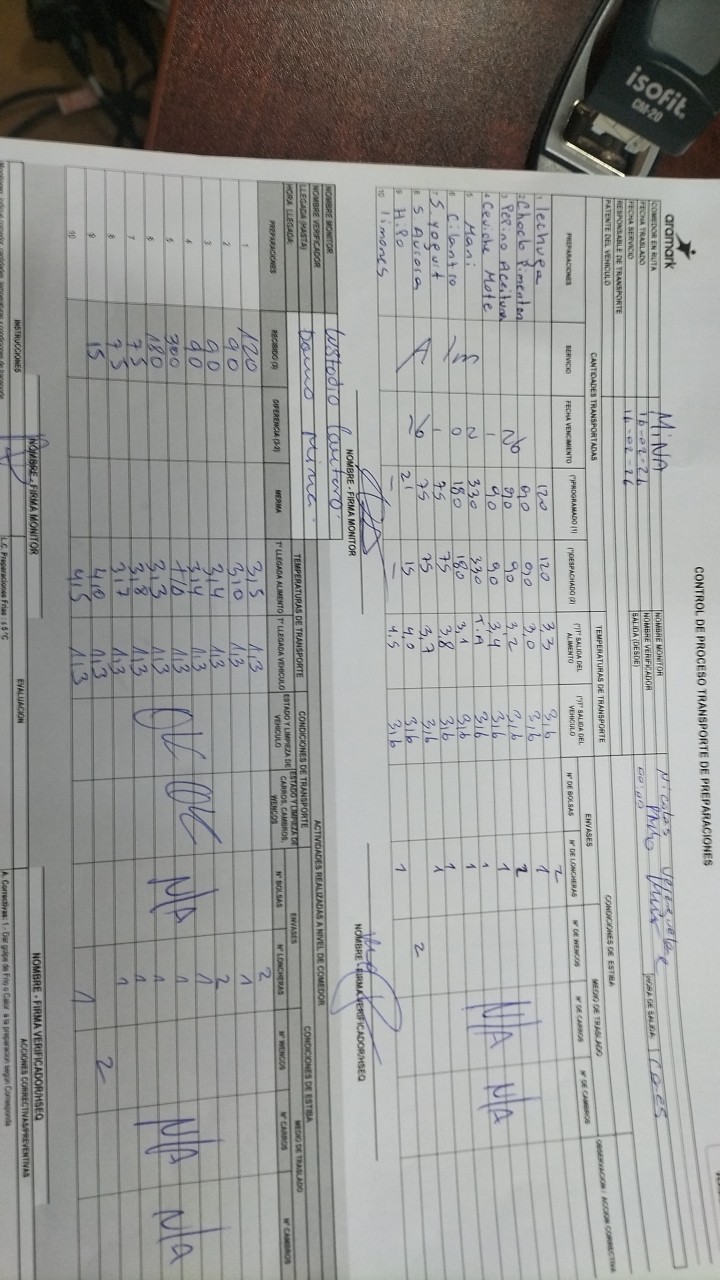 isofit
CM-20
aramark
CONTROL DE PROCESO TRANSPORTE DE PREPARACIONES
COMEDOR EN RUTA MINA NOMBRE MONITOR Nicolas
FECHA TRASLADO 16-02-26 NOMBRE VERIFICADOR
FECHA SERVICIO 16-02-26 SALIDA (DESDE) 00:00 HORA DE SALIDA:
RESPONSABLE DE TRANSPORTE
PATENTE DEL VEHICULO
CANTIDADES TRANSPORTADAS TEMPERATURAS DE TRANSPORTE CONDICIONES DE ESTIBA
ENVASES MEDIO DE TRASLADO OBSERVACION / ACCION CORRECTIVA
PREPARACIONES SERVICIO FECHA VENCIMIENTO (*)PROGRAMADO (1) (*)DESPACHADO (2) (*)T° SALIDA DEL ALIMENTO (*)T° SALIDA DEL VEHICULO N° DE BOLSAS N° DE LONCHERAS N° DE WENCOS N° DE CARROS N° DE CAMBROS
1 lechuga 120 120 3,3 3,6 2
2 Choclo Pimenton 90 90 3,0 3,6 1
3 Pepino Aceituna 26 90 90 3,2 3,6 2 N/A N/A
4 Ceviche Mote - 90 90 3,4 3,6 1
5 Mani 2 330 330 T.A 3,6 1
6 Cilantro 0 180 180 3,1 3,6 1
7 S. yogurt - 75 75 3,8 3,6 1
8 S Aurora 26 75 75 3,7 3,6 1
9 H.Po 21 15 4,0 3,6 2
10 limones - - 4,5 3,6 1
NOMBRE - FIRMA MONITOR NOMBRE - FIRMA VERIFICADOR/HSEQ
NOMBRE MONITOR Custodio Lautaro
NOMBRE VERIFICADOR
LLEGADA (HASTA) Domo Mina
HORA LLEGADA:
ACTIVIDADES REALIZADAS A NIVEL DE COMEDOR
TEMPERATURAS DE TRANSPORTE CONDICIONES DE TRANSPORTE CONDICIONES DE ESTIBA
ENVASES MEDIO DE TRASLADO
PREPARACIONES RECIBIDO (3) DIFERENCIA (3-2) MERMA T° LLEGADA ALIMENTO T° LLEGADA VEHICULO ESTADO Y LIMPIEZA DE VEHICULO ESTADO Y LIMPIEZA DE CARROS, CAMBROS, WENCOS N° BOLSAS N° LONCHERAS N° WENCOS N° CARROS N° CAMBROS
1 120 3,5 1,3 2
2 90 3,0 1,3 1
3 90 3,4 1,3 2
4 90 3,4 1,3 1
5 T/A 1,3 OK OK N/A 1 N/A N/A
6 180 3,3 1,3 1
7 75 3,8 1,3 1
8 75 3,7 1,3 1
9 15 4,0 1,3 2
10 4,5 1,3 1
NOMBRE - FIRMA MONITOR NOMBRE - FIRMA VERIFICADOR/HSEQ
INSTRUCCIONES EVALUACION ACCIONES CORRECTIVAS/PREVENTIVAS
L.C. Preparaciones Frías : ≤ 5 °C
A. Correctivas: 1.- Dar golpe de Frío o Calor a la preparación según Corresponda